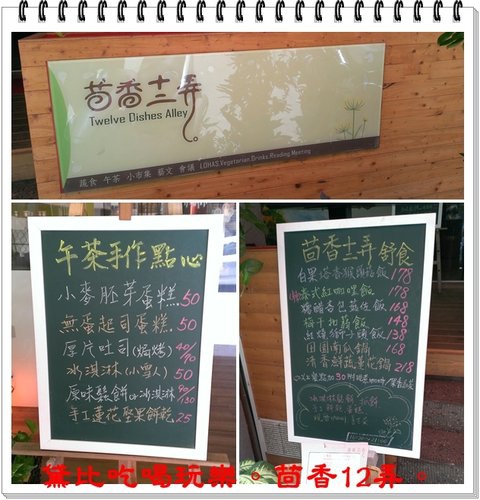 茴香十二弄
Twelve Dishes Alley
蔬食 午茶 小市集 藝文 會議 LOHAS Vegetarian Drinks Reading Meeting
午茶手作點心
小麥胚芽蛋糕 50
無蛋起司蛋糕 50
厚片吐司(焗烤) 40/70
冰淇淋(小雪人) 50
原味鬆餅 or 冰淇淋 90/130
手工蓮花堅果餅乾 25
茴香十二弄舒食
白果塔香猴頭菇飯 178
泰式紅咖哩飯 178
168
梅干扣蒔飯 148
紅燒獅子頭飯 138
田園南瓜鍋 168
清香鮮蔬蓮花鍋 218
黛比吃喝玩樂。茴香12弄。